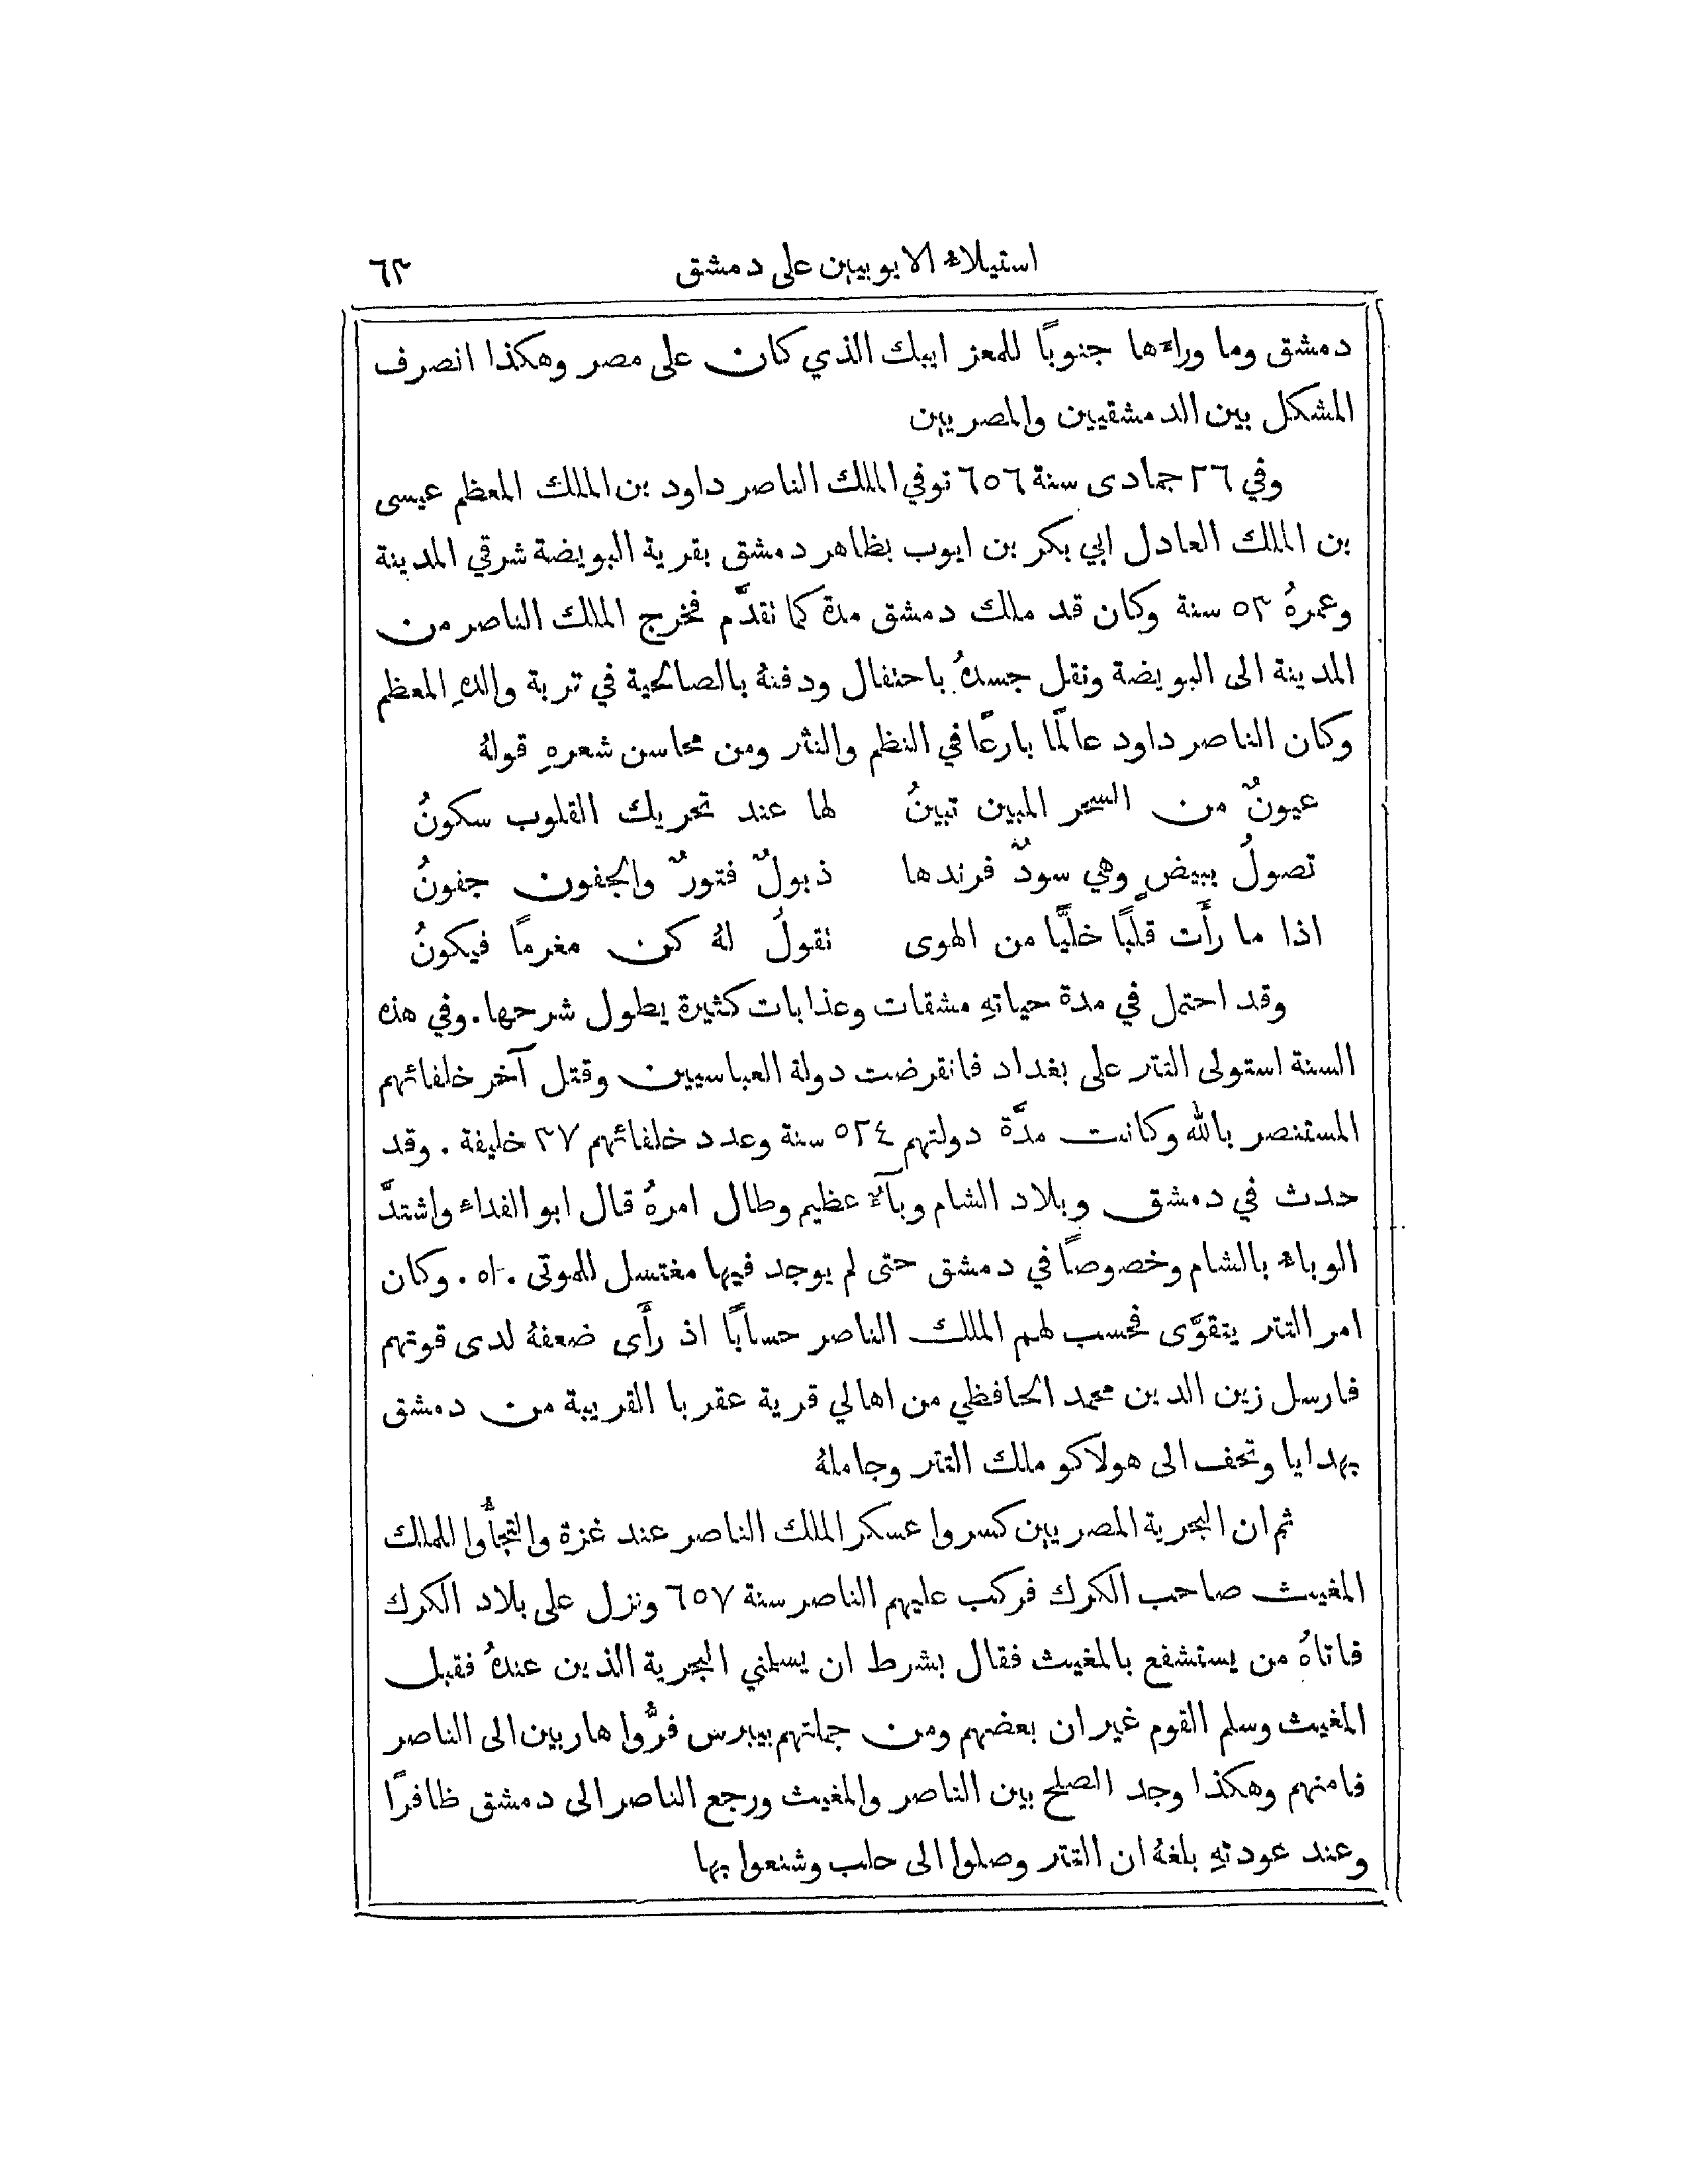 استيلاء الايوبيين على دمشق ٦٣
دمشق وما وراءها جنوبًا للمعز ايبك الذي كان على مصر وهكذا انصرف
المشكل بين الدمشقيين والمصريين
وفي ٢٦ جمادى سنة ٦٥٦ توفي الملك الناصر داود بن الملك المعظم عيسى
بن الملك العادل ابي بكر بن ايوب بظاهر دمشق بقرية البويضة شرقي المدينة
وعمرهُ ٥٣ سنة وكان قد ملك دمشق مدة كما تقدَّم فخرج الملك الناصر من
المدينة الى البويضة ونقل جسدهُ باحتفال ودفنهُ بالصالحية في تربة والدهِ المعظم
وكان الناصر داود عالمًا بارعًا في النظم والنثر ومن محاسن شعرهِ قولهُ
عيونٌ من السحر المبين تبينُ لها عند تحريك القلوب سكونُ
تصولُ ببيضٍ وهي سودٌ فرندها ذبولٌ فتورٌ والجفون جفونُ
اذا ما رأَت قلبًا خليًّا من الهوى تقولُ لهُ كن مغرمًا فيكونُ
وقد احتمل في مدة حياتهِ مشقات وعذابات كثيرة يطول شرحها. وفي هذه
السنة استولى التتر على بغداد فانقرضت دولة العباسيين وقتل آخر خلفائهم
المستنصر بالله وكانت مدَّة دولتهم ٥٢٤ سنة وعدد خلفائهم ٣٧ خليفة. وقد
حدث في دمشق وبلاد الشام وبآء عظيم وطال امرهُ قال ابو الفداء واشتدَّ
الوباء بالشام وخصوصًا في دمشق حتى لم يوجد فيها مغتسل للموتى. اه. وكان
امر التتر يتقوَّى فحسب لهم الملك الناصر حسابًا اذ رأَى ضعفهُ لدى قوتهم
فارسل زين الدين محمد الحافظي من اهالي قرية عقربا القريبة من دمشق
بهدايا وتحف الى هولاكو ملك التتر وجاملهُ
ثم ان البحرية المصريين كسروا عسكر الملك الناصر عند غزة والتجأُوا للملك
المغيث صاحب الكرك فركب عليهم الناصر سنة ٦٥٧ ونزل على بلاد الكرك
فاتاهُ من يستشفع بالمغيث فقال بشرط ان يسلمني البحرية الذين عندهُ فقبل
المغيث وسلم القوم غير ان بعضهم ومن جملتهم بيبرس فرُّوا هاربين الى الناصر
فامنهم وهكذا وجد الصلح بين الناصر والمغيث ورجع الناصر الى دمشق ظافرًا
وعند عودتهِ بلغهُ ان التتر وصلوا الى حلب وشنعوا بها